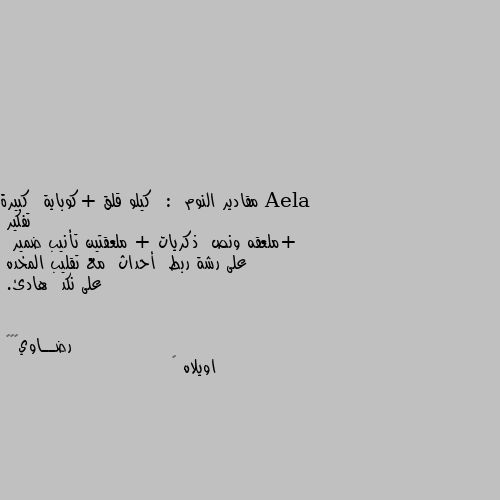 Aela مقادير النوم : كيلو قلق +كوباية كبيرة
تفكير
+ملعقه ونص ذكريات + ملعقتين تأنيب ضمير
على رشة ربط أحداث مع تقليب المخده
على نكد هادئ.
رضــاوي
اويلاه